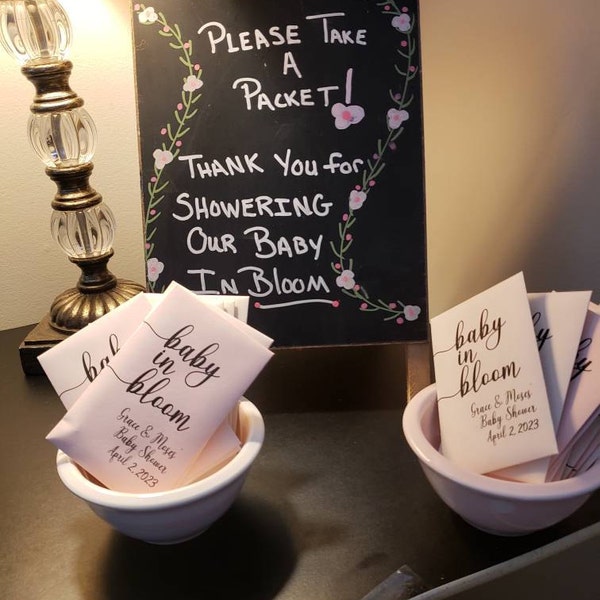 PLEASE TAKE
A
PACKET!
THANK YOU for
SHOWERING
OUR BABY
IN BLOOM
baby
in
bloom
Grace & Moses'
Baby Shower
April 2, 2023
baby
in
bloom
Grace & Moses'
Baby Shower
April 2, 2023